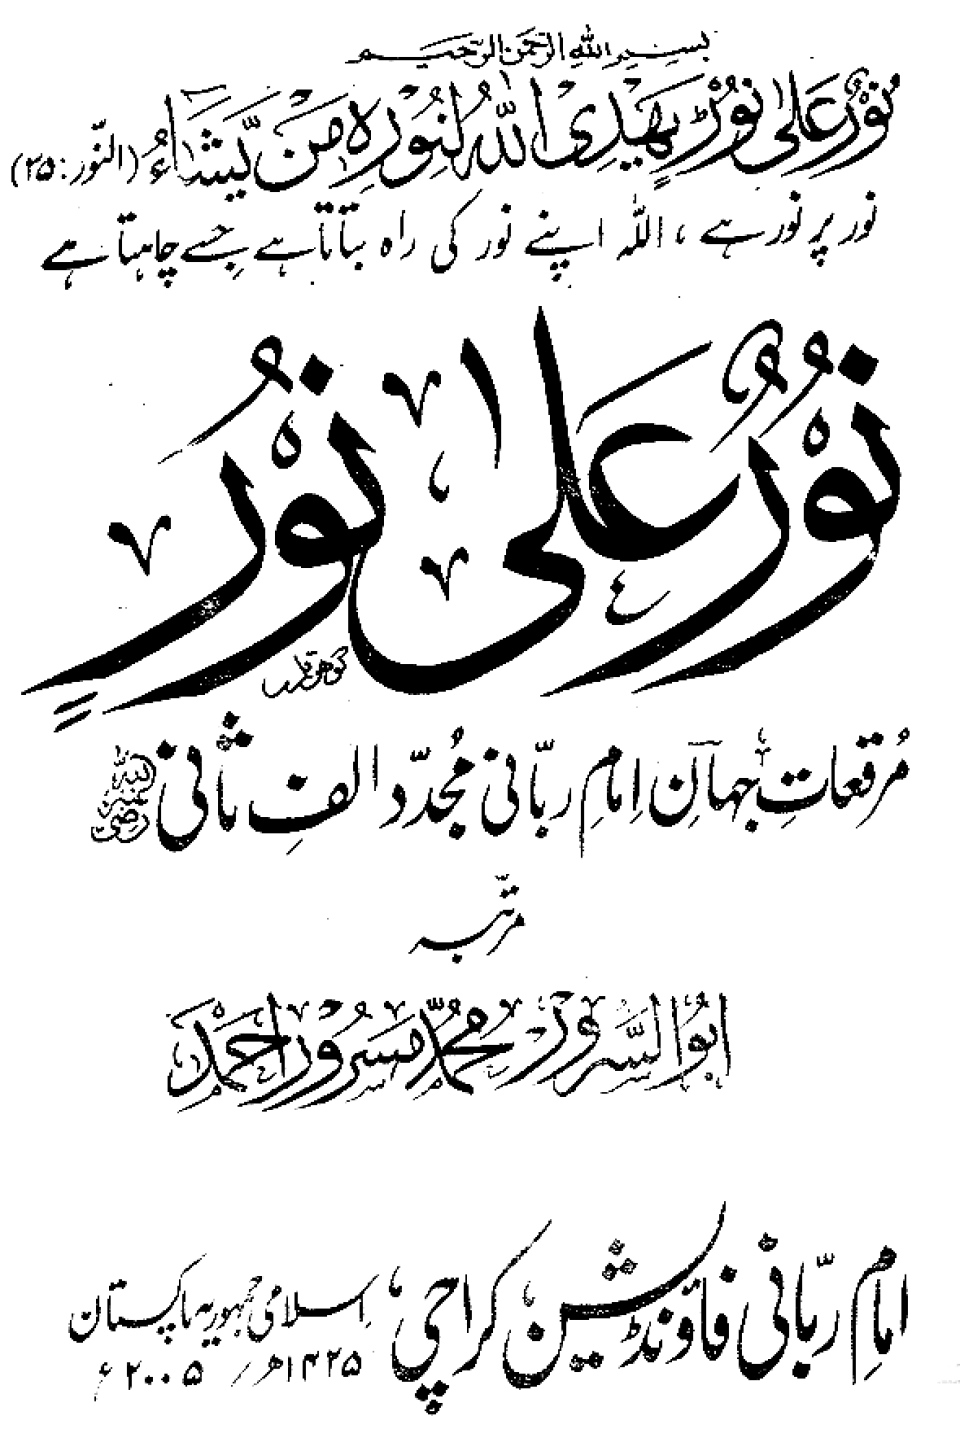 بسم الله الرحمن الرحيم
نُوْرٌ عَلٰى نُوْرٍ يَهْدِى اللّٰهُ لِنُوْرِهٖ مَنْ يَّشَآءُ (النّور: ٢٥)
نور پر نور ہے، اللہ اپنے نور کی راہ بتاتا ہے جسے چاہتا ہے
نُوْرٌ عَلٰى نُوْرٍ
گوہر قلم
مُرقعاتِ جہانِ اِمامِ ربّانی مُجدّد الف ثانی رضی اللہ عنہ
مرتّبہ
ابُو السُّرور مُحمّد مسرُور احمد
اِمامِ ربّانی فاؤنڈیشن، کراچی، اسلامی جمہوریہ پاکستان
۱۴۲۵ھ / ۲۰۰۵ء